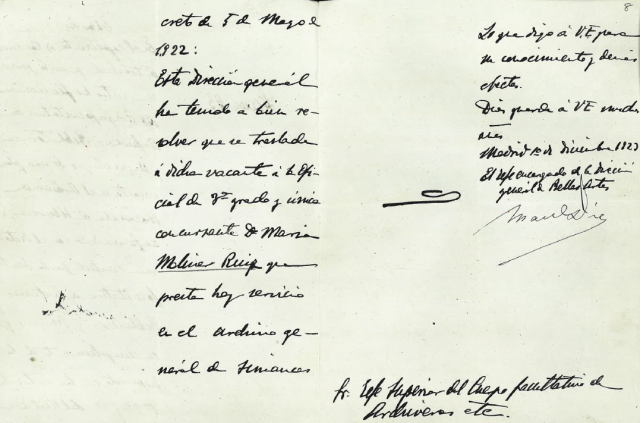 creto de 5 de Mayo d
1922:
Esta Dirección general
ha tenido á bien re-
solver que se traslade
á dicha vacante á la Ofi-
cial de 3er grado y única
concursante Da Maria
Moliner Ruiz que
presta hoy servicio
en el archivo ge-
neral de Simancas
8
Lo que digo á V.E. para
su conocimiento y demás
efectos.
Dios guarde á V.E. muchos
años
Madrid de diciembre 1923
El Jefe encargado de la Dirección
general de Bellas Artes
Sr. Jefe Superior del Cuerpo facultativo de
Archiveros etc.